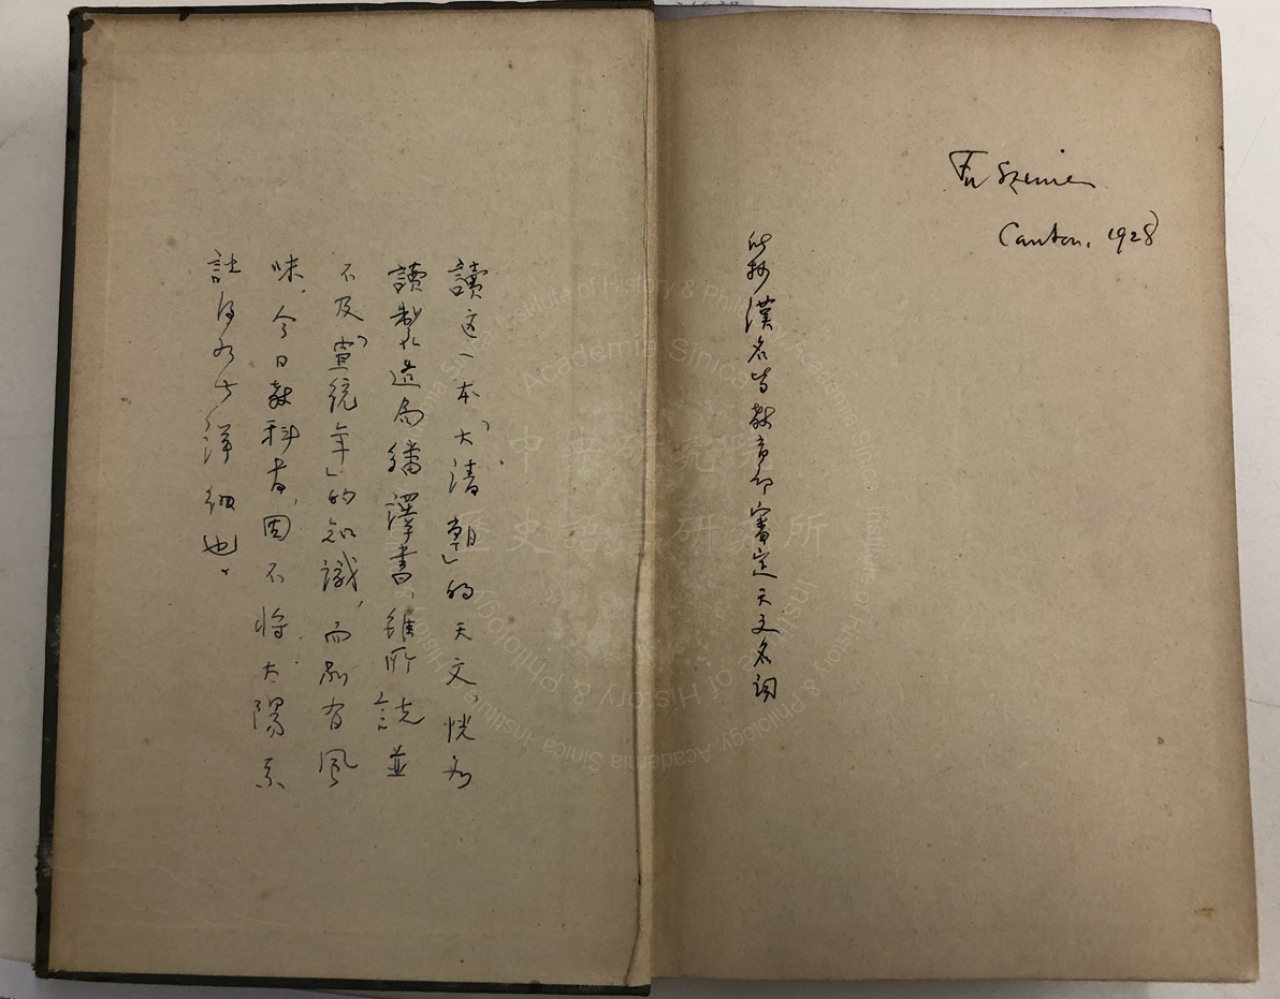 Fu Szenien
Canton, 1928
抄漢名皆教育部審定天文名詞
讀這一本「大清朝」的天文、恍如
讀製造局繙譯書、雖所說並
不及「宣統年」的知識，而別有風
味。今日教科書，固不將太陽系
說得如此詳細也。
中央研究院
歷史語言研究所
Institute of History & Philology, Academia Sinica